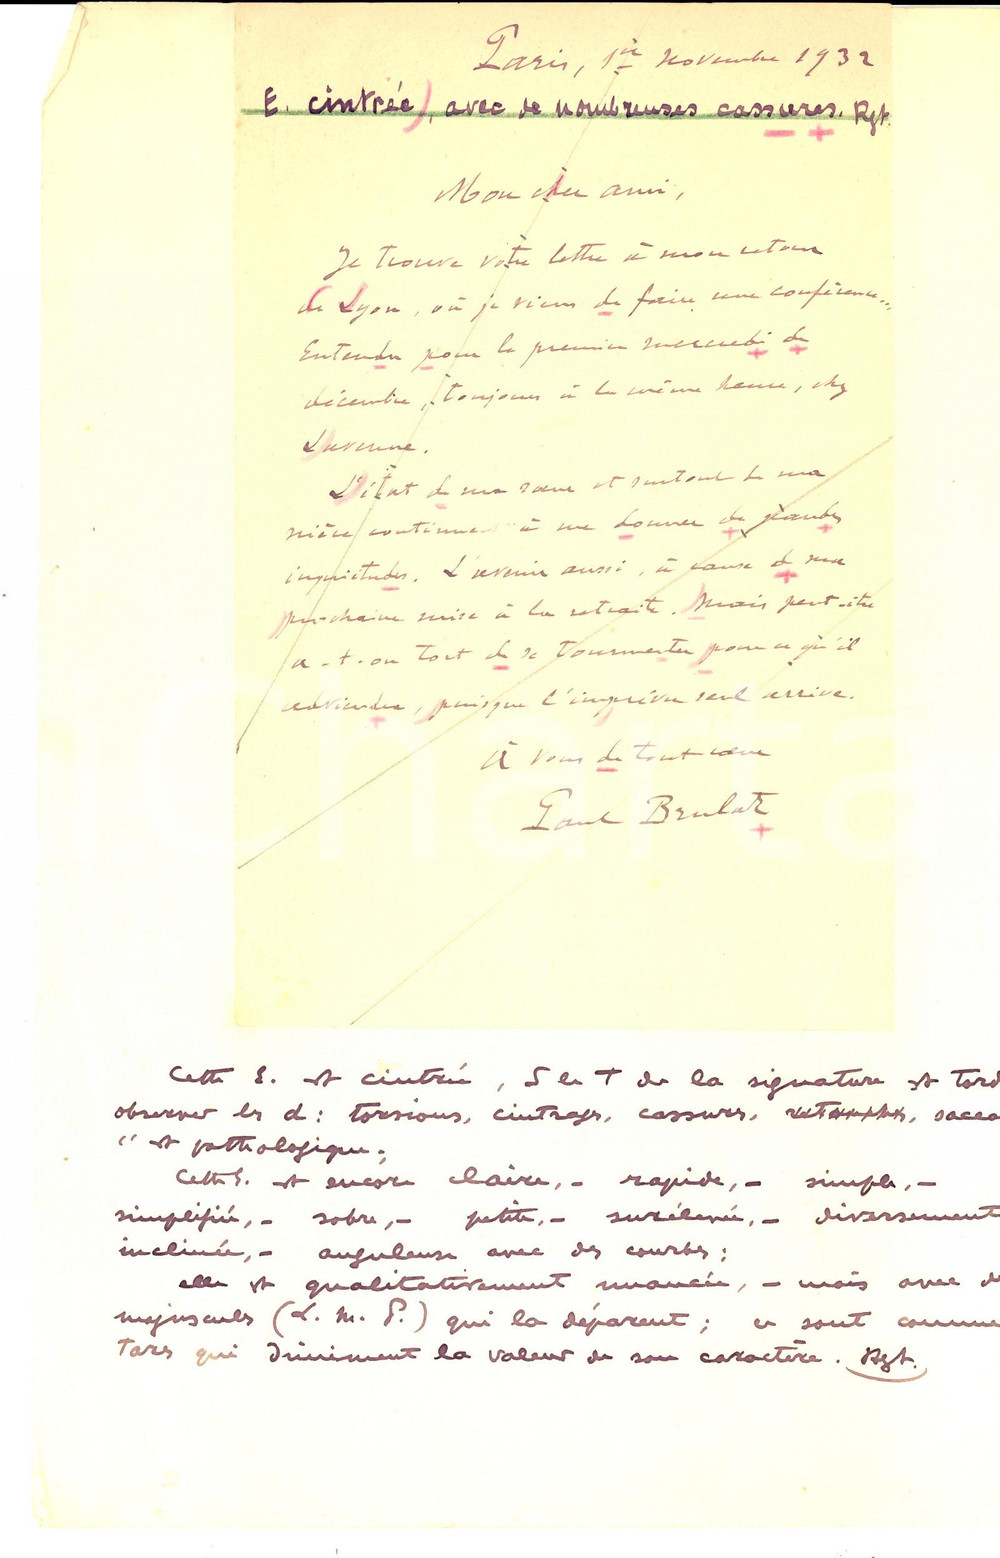 Paris, 1er novembre 1932
E. cintrée), avec de nombreuses cassures. Rgt.
Mon cher ami,
Je trouve votre lettre à mon retour
de Lyon, où je viens de faire une conférence..
Entendu pour le premier mercredi de
décembre, toujours à la même heure, chez
Lavenue.
L'état de ma sœur et surtout de ma
nièce continue à me donner de grandes
inquiétudes. L'avenir aussi, à cause de ma
prochaine mise à la retraite. Mais peut-être
a-t-on tort de se tourmenter pour ce qu'il
adviendra, puisque l'imprévu seul arrive.
À vous de tout cœur
Paul Brulat
Charta
Cette E. est cintrée, le T de la signature est tord
observer les d : torsions, cintrages, cassures, sacca
" est pathologique.;
Cette E. est encore claire,- rapide,- simple,-
simplifiée,- sobre,- petite,- surélevée,- diversement
inclinée,- anguleuse avec des courbes;
elle est qualitativement nuancée,- mais avec de
majuscules (L. M. P.) qui la déparent; ce sont comme
tares qui diminuent la valeur de son caractère. Rgt.